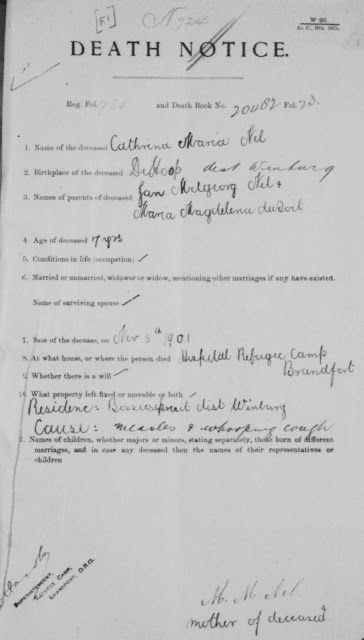 [E1]
N 724
W 20.
DEATH NOTICE.
Reg. Fol. and Death Book No. 20482 Fol. 73.
1. Name of the deceased Cathrina Maria Nel
2. Birthplace of the deceased De Hoop dist Winburg
3. Names of parents of deceased Jan Nel &
Maria Magdelena du Toit
4. Age of deceased 7 yrs
5. Conditions in life (occupation)
6. Married or unmarried, widower or widow, mentioning other marriages if any have existed.
Name of surviving spouse
7. Date of the decease, on Nov 5th 1901
8. At what house, or where the person died Hospital Refugee Camp
Brandfort
9. Whether there is a will
10. What property left fixed or movable or both
Residence: dist Winburg
Cause: measles & whooping cough
Names of children, whether majors or minors, stating separately, those born of different
marriages, and in case any deceased then the names of their representatives or
children
SUPERINTENDENT,
REFUGEE CAMP,
BRANDFORT, O.R.C.
M. M. Nel
mother of deceased